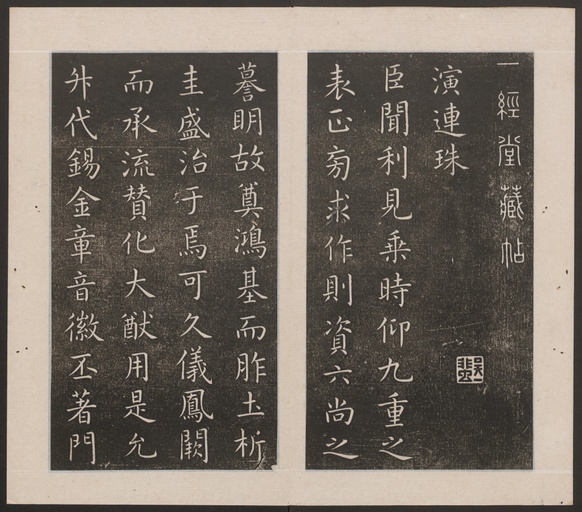 一經堂藏帖
演連珠
臣聞利見乘時仰九重之
表正旁求作則資六尚之
謩明故奠鴻基而胙土析
圭盛治于焉可久儀鳳闕
而承流賛化大猷用是允
升代錫金章音徽丕著門